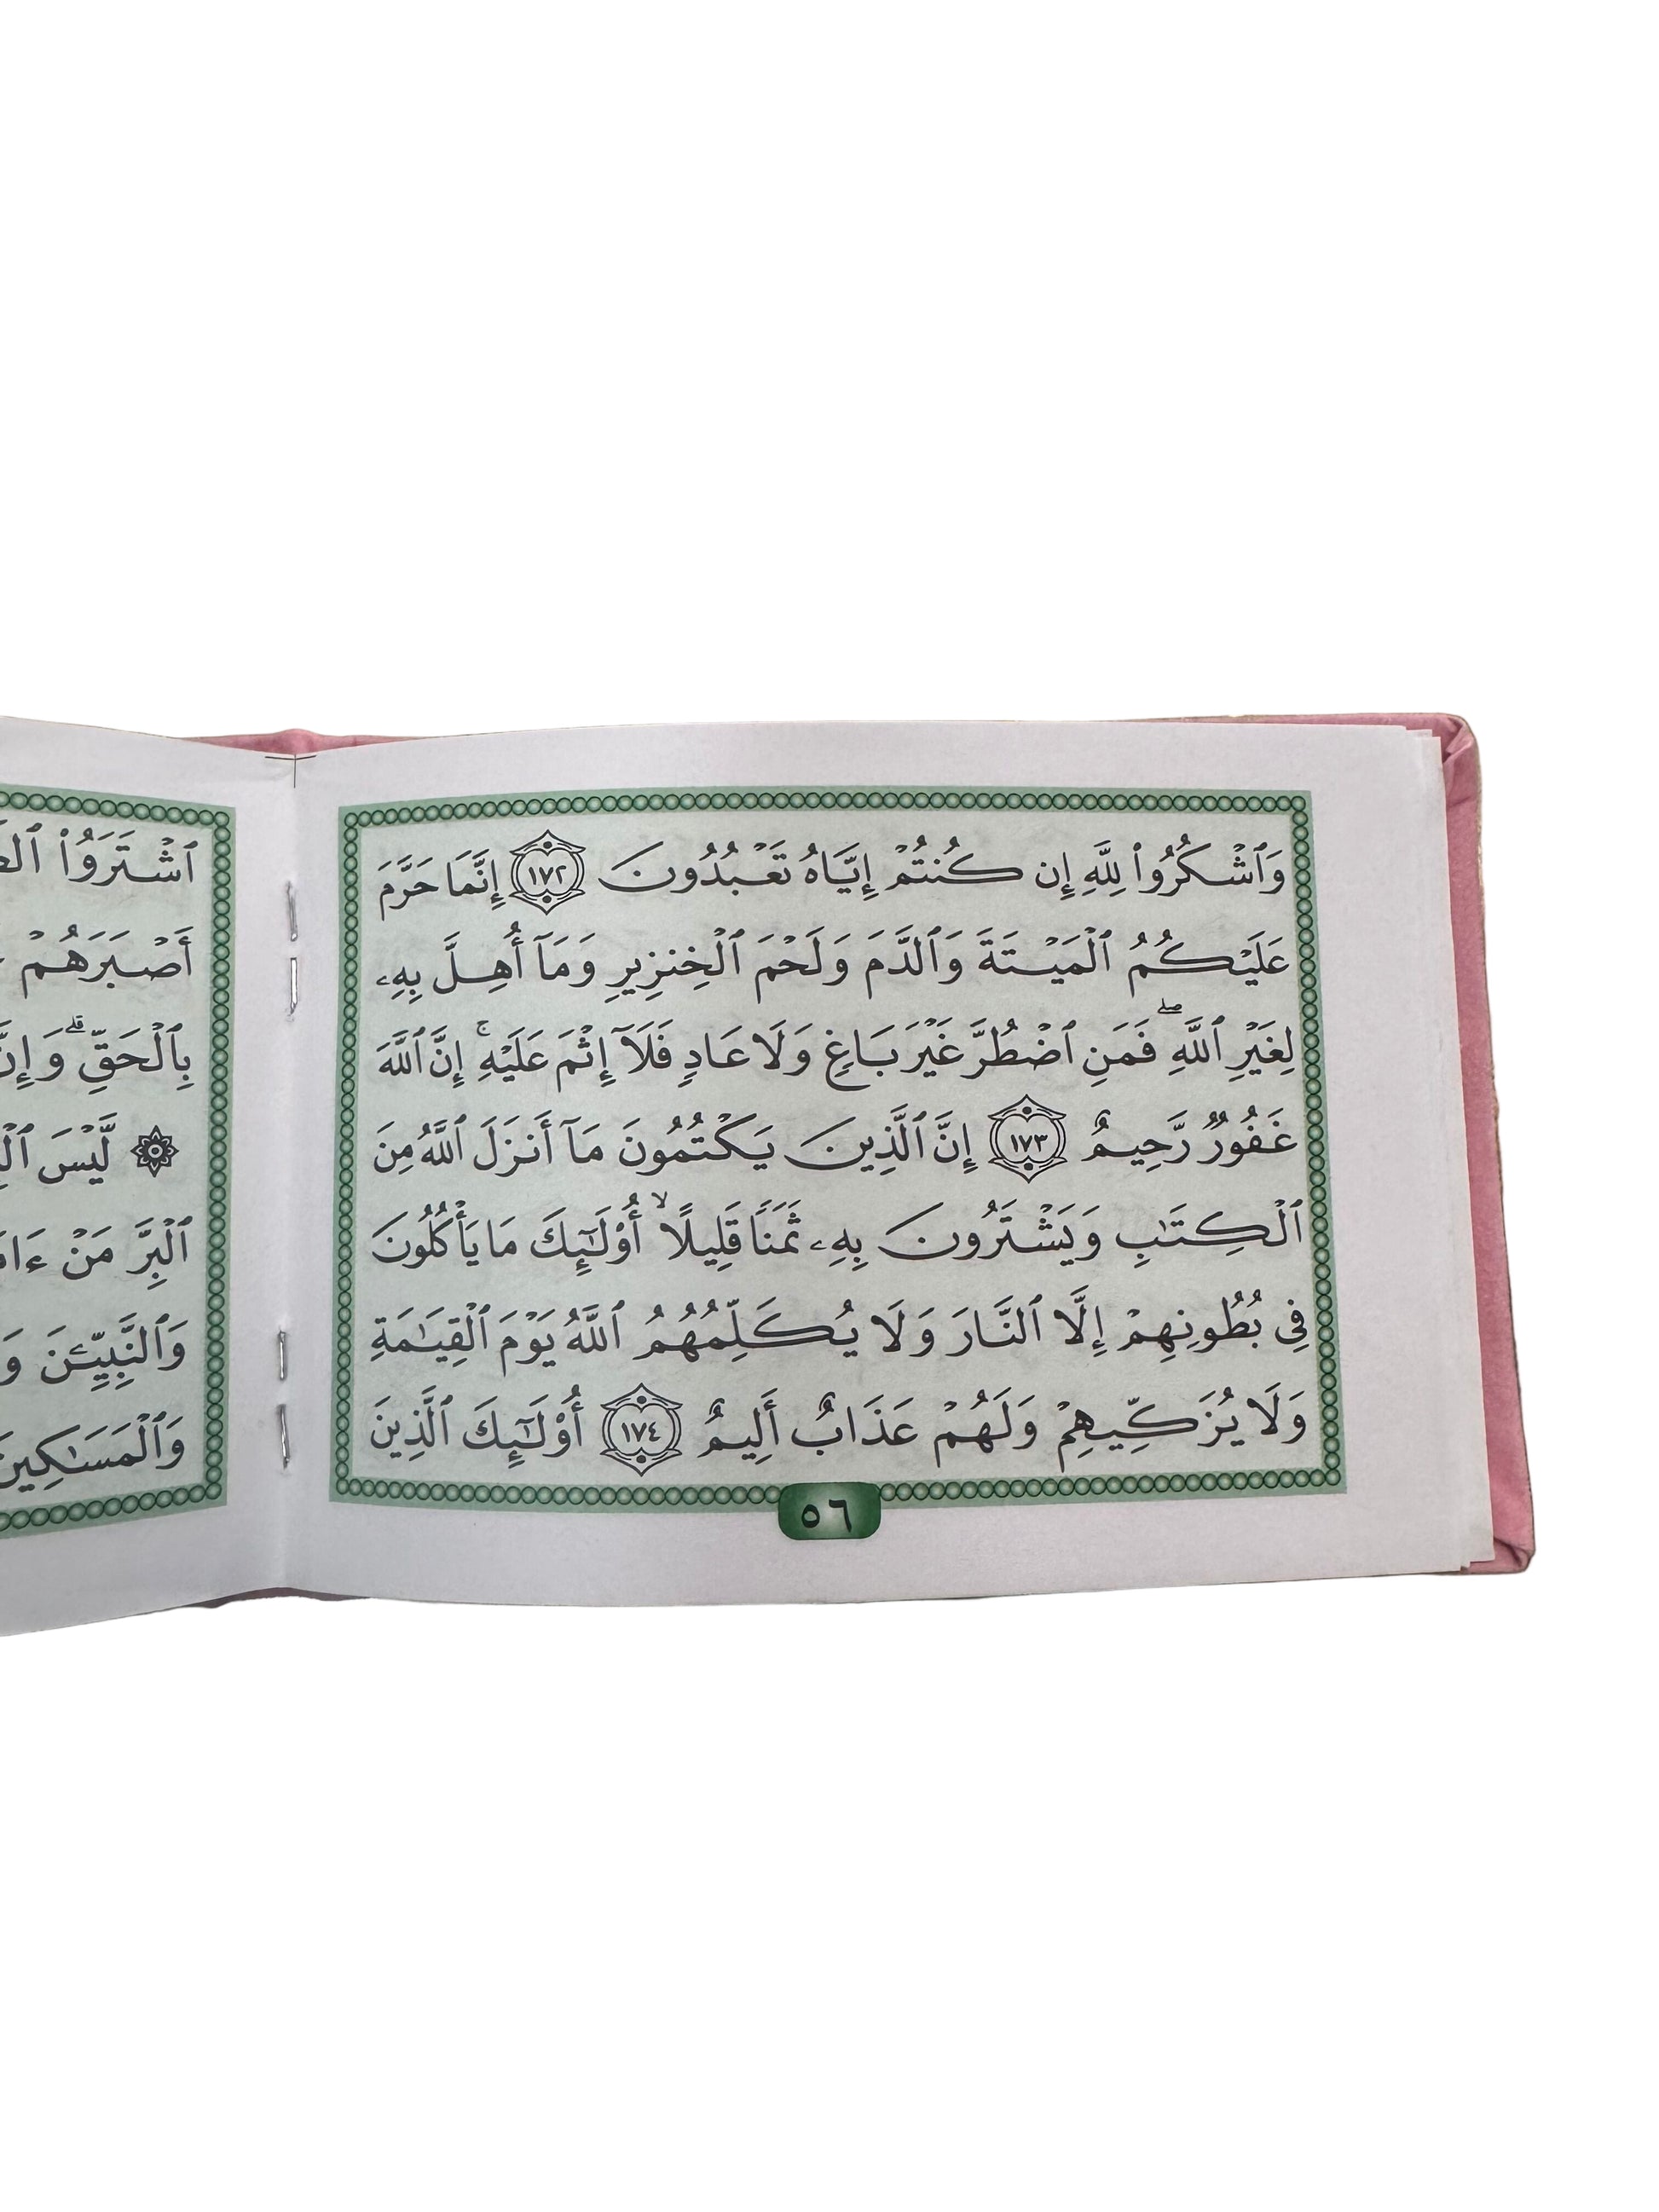 وَٱشۡكُرُواْ لِلَّهِ إِن كُنتُمۡ إِيَّاهُ تَعۡبُدُونَ ١٧٢ إِنَّمَا حَرَّمَ
عَلَيۡكُمُ ٱلۡمَيۡتَةَ وَٱلدَّمَ وَلَحۡمَ ٱلۡخِنزِيرِ وَمَآ أُهِلَّ بِهِۦ
لِغَيۡرِ ٱللَّهِۖ فَمَنِ ٱضۡطُرَّ غَيۡرَ بَاغٖ وَلَا عَادٖ فَلَآ إِثۡمَ عَلَيۡهِۚ إِنَّ ٱللَّهَ
غَفُورٞ رَّحِيمٌ ١٧٣ إِنَّ ٱلَّذِينَ يَكۡتُمُونَ مَآ أَنزَلَ ٱللَّهُ مِنَ
ٱلۡكِتَٰبِ وَيَشۡتَرُونَ بِهِۦ ثَمَنٗا قَلِيلًاۙ أُوْلَٰٓئِكَ مَا يَأۡكُلُونَ
فِي بُطُونِهِمۡ إِلَّا ٱلنَّارَ وَلَا يُكَلِّمُهُمُ ٱللَّهُ يَوۡمَ ٱلۡقِيَٰمَةِ
وَلَا يُزَكِّيهِمۡ وَلَهُمۡ عَذَابٌ أَلِيمٌ ١٧٤ أُوْلَٰٓئِكَ ٱلَّذِينَ
٥٦
ٱشۡتَرَوُاْ
أَصۡبَرَهُمۡ
بِٱلۡحَقِّۗ وَإِنَّ
۞ لَّيۡسَ
ٱلۡبِرَّ مَنۡ
وَٱلنَّبِيِّـۧنَ
وَٱلۡمَسَٰكِينَ